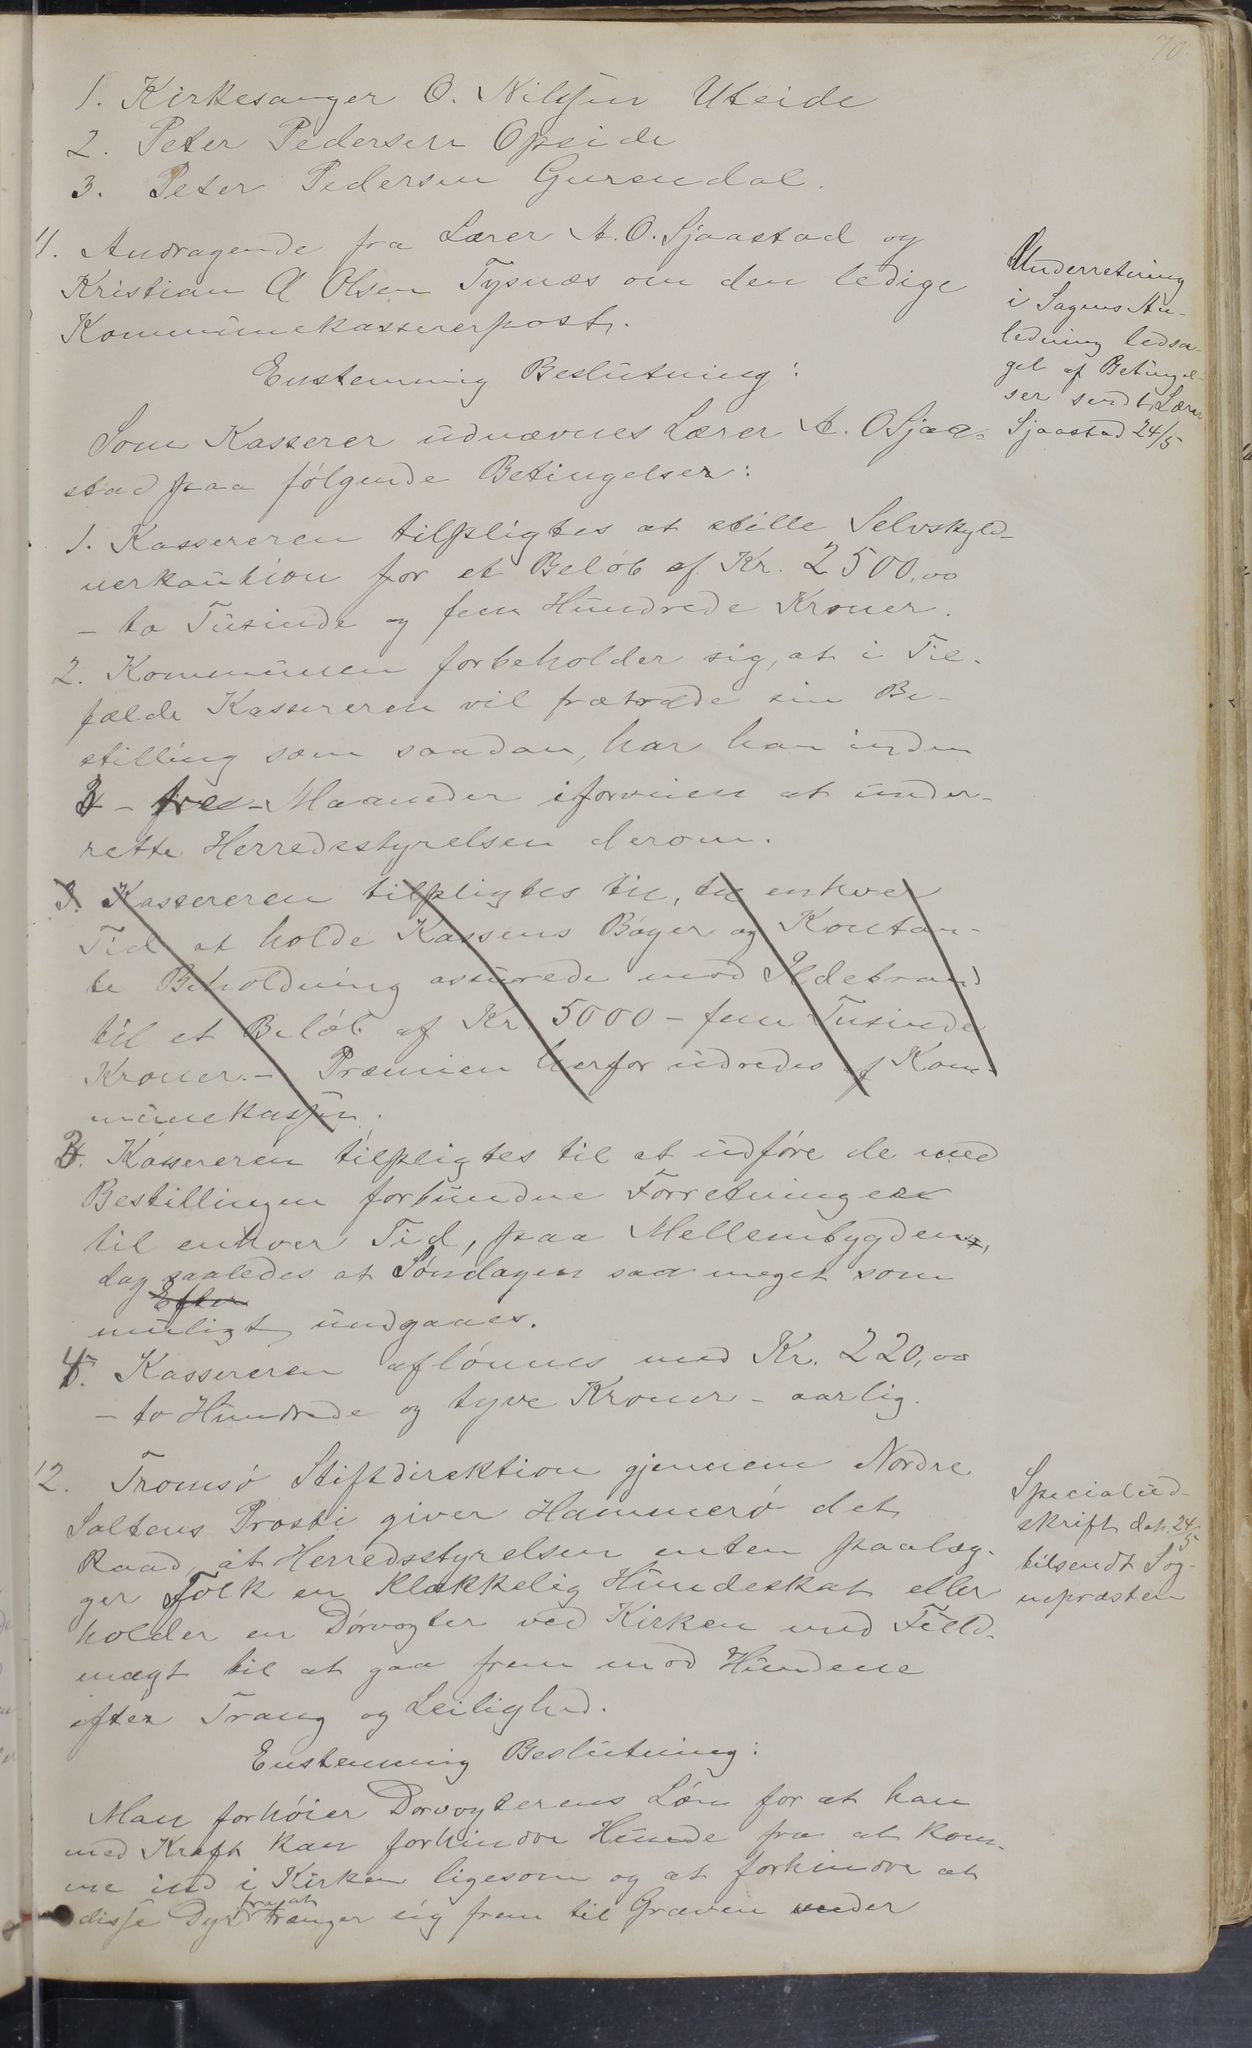 70.
1. Kirkesanger O. Nilssen Uteide
2. Peter Pedersen Opeide
3. Peter Pedersen Gurendal.
11. Andragende fra Lærer A. O. Sjaastad og
Kristian A Olsen Tysnæs om den ledige
Kommunekassererpost.
Underretning
i Sagens An-
ledning ledsa-
get af Betingel-
ser sendt Lærer
Sjaastad 24/5
Enstemmig Beslutning:
Som Kasserer udnævnes Lærer A. O Sjaa-
stad paa følgende Betingelser:
1. Kassereren tilpligtes at stille Selvskyld-
nerkaution for et Beløb af Kr. 2500,00
- to Tusinde og fem Hundrede Kroner.
2. Kommunen forbeholder sig, at i Til-
fælde Kassereren vil fratræde sin Be-
stilling som saadan, har han inden
3 - tre - Maaneder iforveien at under-
rette Herredestyrelsen derom.
3. Kassereren tilpligtes til, til enhver
Tid at holde Kassens Bøger og Kontan-
te Beholdning assurede mod Ildebrand
til et Beløb af Kr. 5000 - fem Tusinde
Kroner. - Præmien herfor udredes af Kom-
munekassen.
3. Kassereren tilpligtes til at udføre de med
Bestillingen forbundne Forretninger
til enhver Tid, paa Mellembygden,
dag saaledes at Søndagen saa meget som
Efter
muligt undgaaes.
4. Kassereren aflønnes med Kr. 220,00
- to Hundrede og tyve Kroner - aarlig.
12. Tromsø Stiftdirektion gjennem Nordre
Saltens Prosti giver Hammerø det
Raad, at Herredsstyrelsen enten paalæg-
ger Folk en klækkelig Hundeskat eller
holder en Dørvogter ved Kirken med Fuld-
magt til at gaa frem mod Hundene
efter Trang og Leilighed.
Specialud-
skrift dat. 24/5
tilsendt Sog-
nepræsten
Enstemmig Beslutning:
Man forhøier Dørvogterens Løn for at han
med Kraft kan forhindre Hunde fra at kom-
me ind i Kirken ligesom og at forhindre at
fra at
disse Dyr trænger sig frem til Graven under